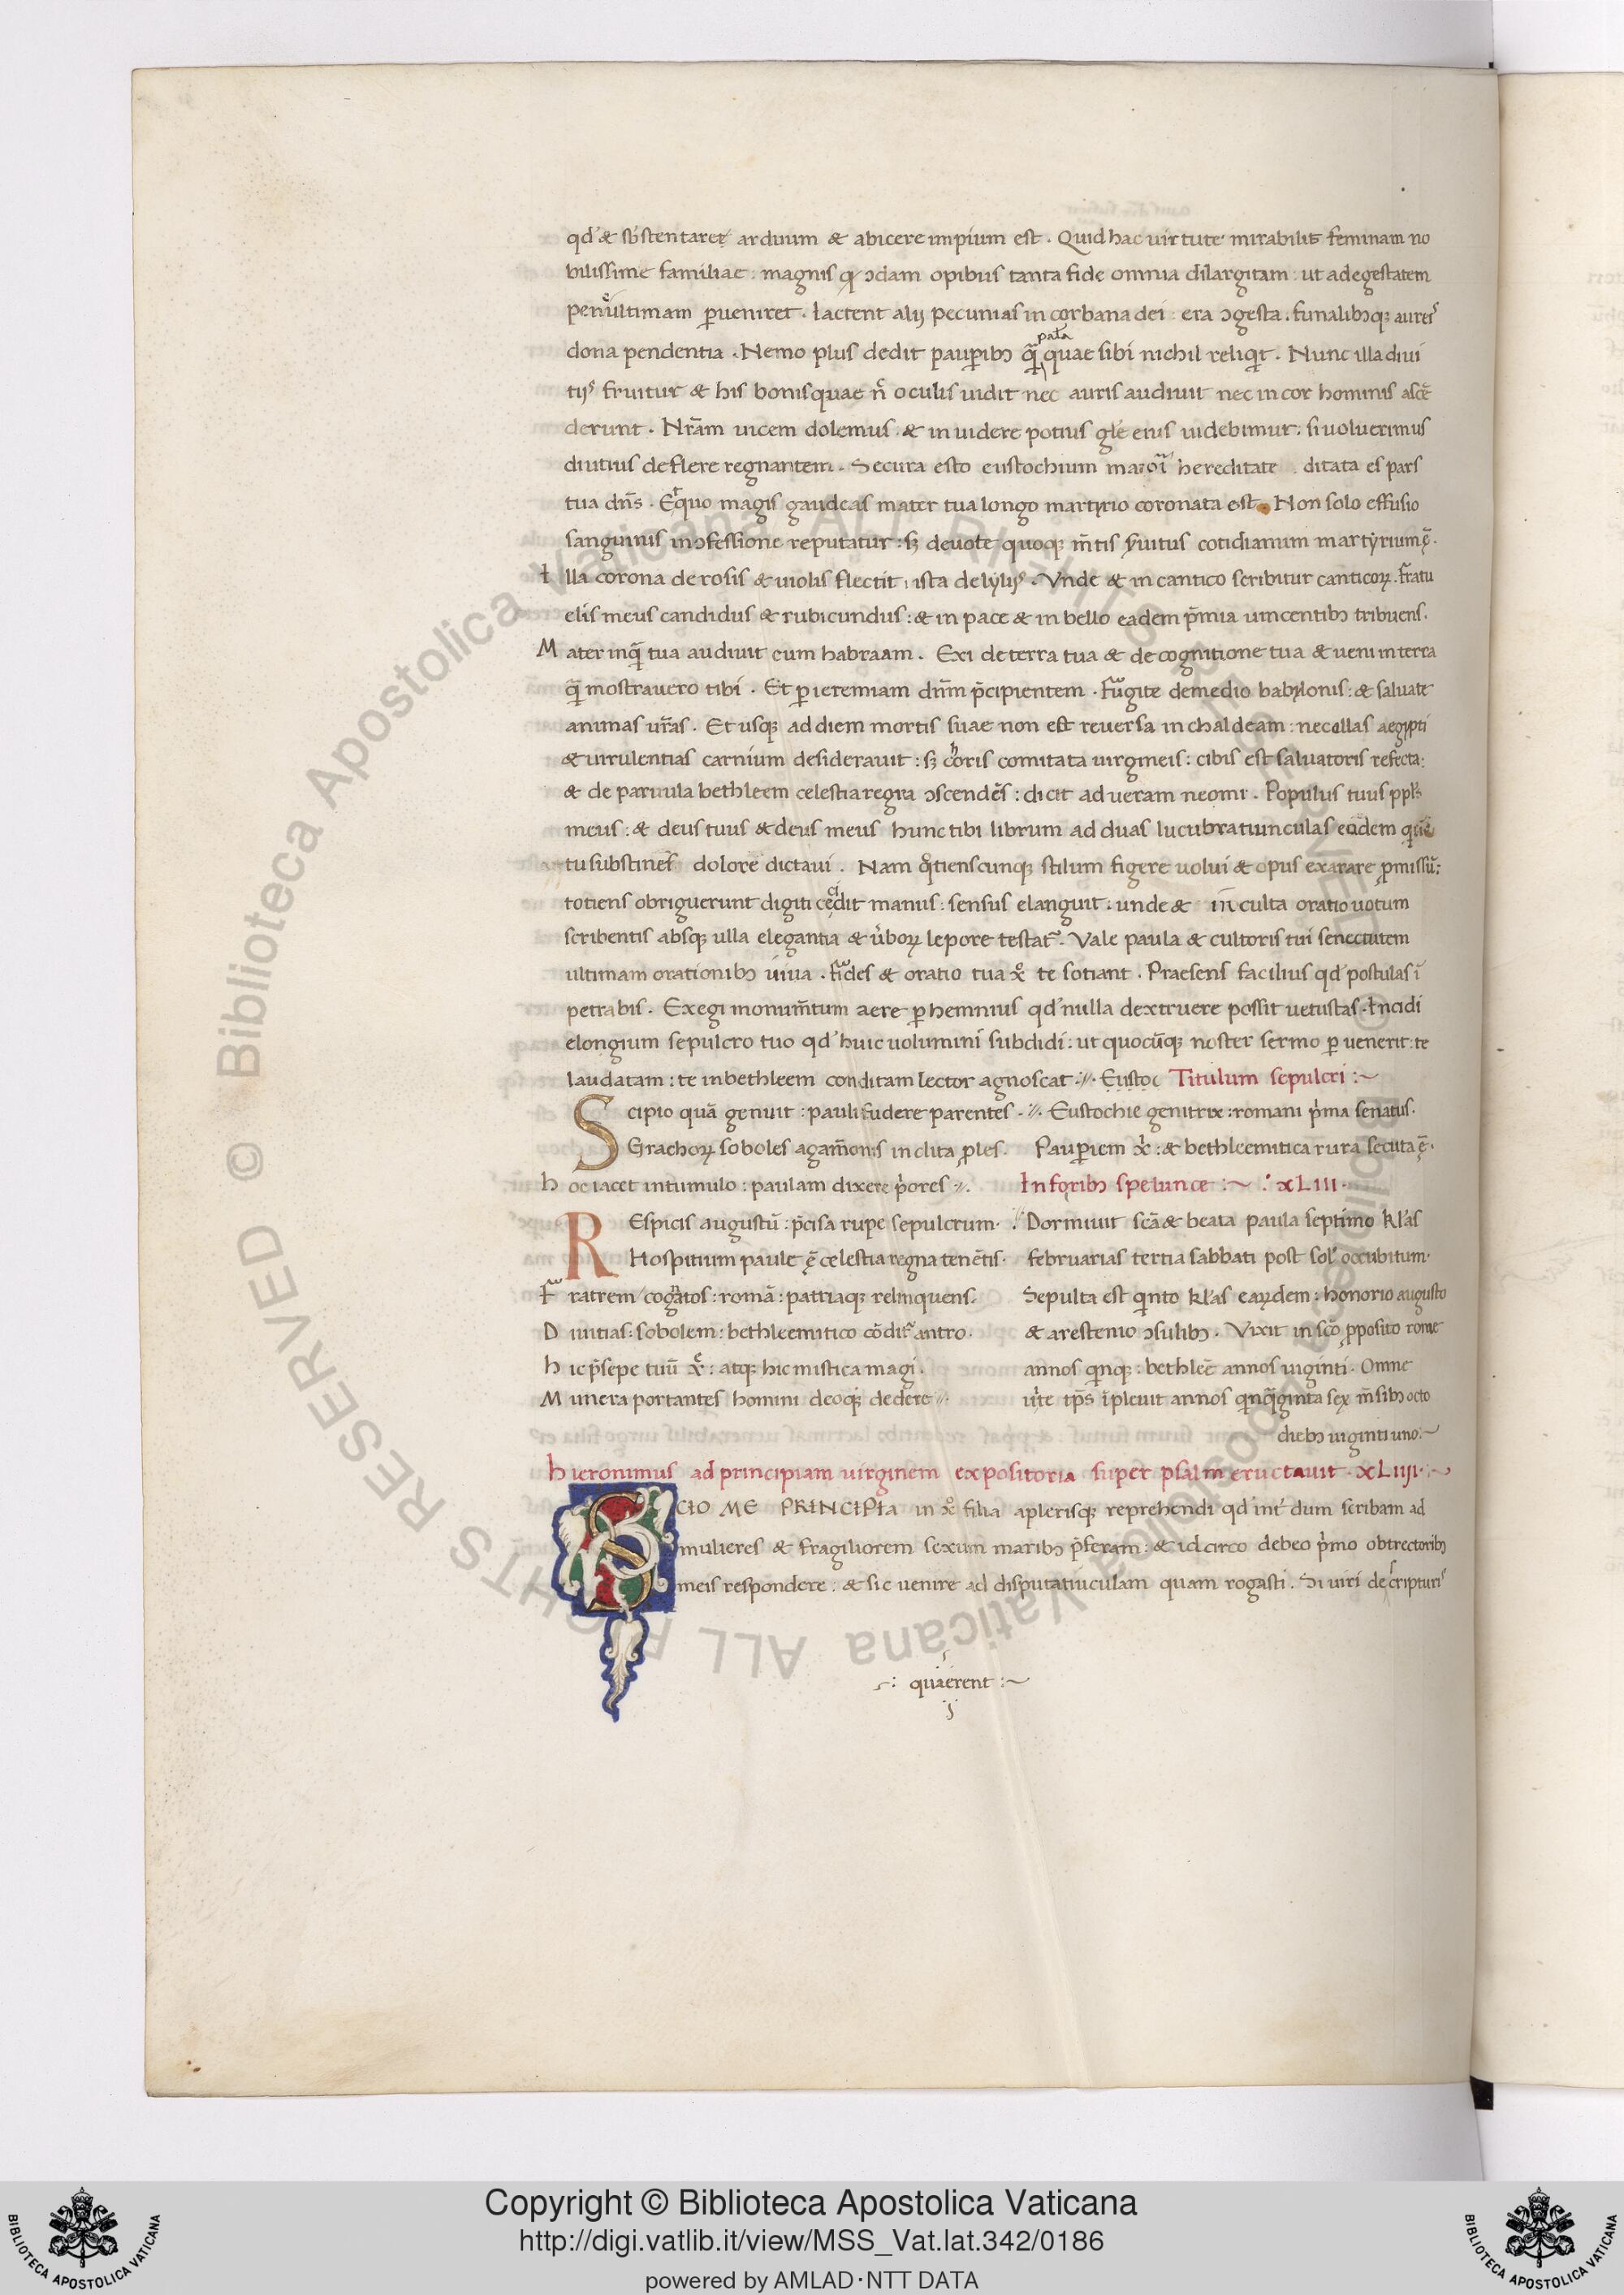 qd' & sb'stentaret arduum & abicere impium est . Quid hac uirtute mirabili' feminam no
bilissime familiae : magnis q ɔdam opibus tanta fide omnia dilargitam : ut adegestatem
penultimam ꝑueniret . Iactent alij pecunias in corbana dei : era ɔgesta . funalibɔqꝫ aures'
dona pendentia . Nemo plus dedit pauꝑibɔ q̃ quae sibi nichil reliqit . Nunc illa diui
paula
tijs fruitur & his bonis quae ñ oculus uidit nec auris audiuit nec in cor hominis ascē
derunt . Nr̃am uicem dolemus . & inuidere potius glē eius uidebimur : si uoluerimus
diutius deflere regnantem . Secura esto eustochium hereditate . ditata es pars
tua dñs . Et quo magis gaudeas mater tua longo martyrio coronata est . Non solo effusio
sanguinis inɔfessione reputatur : sꝫ deuote quoqꝫ m̃tis s'uitus cotidianum martyrium ē .
Illa corona de rosis & uiolis flectit : ista de lylijs . Vnde & in cantico scribitur canticoꝝ . fratu
elis meus candidus & rubicundus : & in pace & in bello eadem p̃mia uincentibɔ tribuens .
Mater inq̃ tua audiuit cum habraam . Exi de terra tua & de cognitione tua & ueni in terra
q̃ mostrauero tibi . Et ꝑ ieremiam dñm p̃cipientem . fugite demedio babylonis : & saluate
animas ur̃as . Et usqꝫ ad diem mortis suae non est reuersa in chaldeam : nec ollas aegypti
& uirulentias carnium desiderauit : sꝫ choris comitata uirgineis : cibis est saluatoris refecta :
& de paruula bethleem celestia regna ɔscendēs : dicit ad ueram neomi . Populus tuus ppl's
meus : & deus tuus & deus meus hunc tibi librum ad duas lucubratiunculas eodem quē
tu substines dolore dictaui . Nam q°tienscunqꝫ stilum figere uolui & opus exarare ꝓmissū :
totiens obriguerunt digiti cedit manus : sensus elanguit . unde & inculta oratio uotum
scribentis absqꝫ ulla elegantia & ùboꝝ lepore testat' . Vale paula & cultoris tui senectutem
ultimam orationibɔ iuua . fides & oratio tua xº te sotiant . Praesens facilius qd' postulas ĩ
petrabis . Exegi monum̃tum aere ꝑhemnius qd' nulla dextruere possit uetustas . Incidi
elongium sepulcro tuo qd' huic uolumini subdidi : ut quocũqꝫ noster sermo ꝑuenerit : te
laudatam : te inbethleem conditam lector agnoscat : Eustoc Titulum sepulcri :~
Scipio quā genuit : pauli fudere parentes . Eustochie genitrix : romani p'ma senatus .
Grachoꝝ soboles agam̃onis inclita ꝓles . Pauꝑiem xi : & bethleemitica rura secuta ē .
hoc iacet intumulo : paulam dixere p'ores . In foribɔ spelunce :~ : xLiii .
REspicis augustū : p̃cisa rupe sepulcrum . Dormiuit scā & beata paula septimo kl'as
Hospitium paule ē celestia regna tenētis . februarias tertia sabbati post sol' occubitum .
Fratrem cognatos : romā : patriaqꝫ relinquens . Sepulta est qinto kl'as eaꝝdem : honorio augusto
Diuitias : sobolem : bethleemitico cōdit' antro . & arestenio ɔsulibɔ . Vixit in scō ꝓposito rome
hic p̃sepe tuū xe : atqꝫ hic mistica magi . annos qinqꝫ : bethleē annos uiginti . Omne
Munera portantes homini deoqꝫ dedere . uite tp̃s ĩpleuit annos qinq̃ginta sex m̃sibɔ octo
diebɔ uiginti uno :~
hieronimus ad principiam uirginem expositoria super psalm eructauit . xLiiij . ~
SCIO ME PRINCIPIA in xº filia aplerisqꝫ reprehendi qd int'dum scribam ad
mulieres & fragiliorem sexum maribɔ p̃feram : & idcirco debeo p'mo obtrectoribɔ
meis respondere : & sic uenire ad disputatiunculam quam rogasti . Si uiri de scripturis
quaerent :~
Copyright © Biblioteca Apostolica Vaticana
http://digi.vatlib.it/view/MSS_Vat.lat.342/0186
powered by AMLAD·NTT DATA
BIBLIOTECA APOSTOLICA VATICANA
BIBLIOTECA APOSTOLICA VATICANA
© Biblioteca Apostolica Vaticana ALL RIGHTS RESERVED